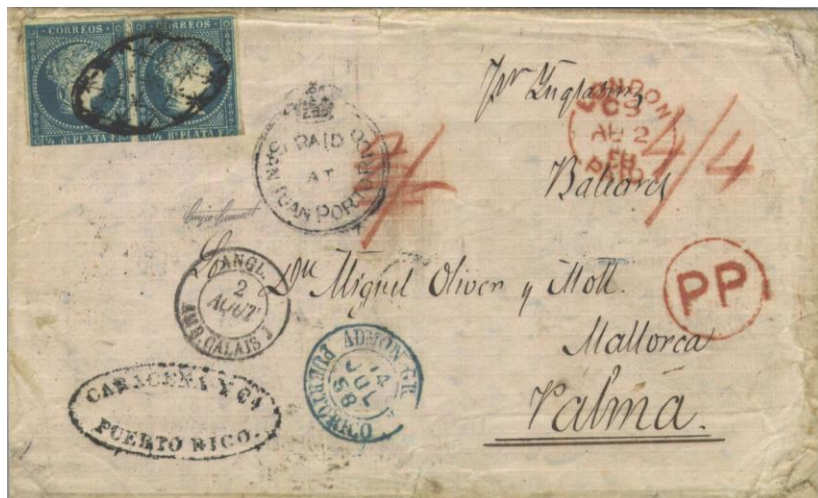 CORREOS CORREOS
½ Rl PLATA F. ½ Rl PLATA F.
PAID
AT
SAN JUAN PORTO RICO
Pr Inglaterra
LONDON
AU 2
58
PAID
4/4
Baleares
ANGL.
2
AOUT
AMB. CALAIS
Dn Miguel Oliver y Moll.
PP
Mallorca
ADMON GR.
14
JUL
58
PUERTO RICO
Palma.
CARACENA Y Ca
PUERTO RICO.